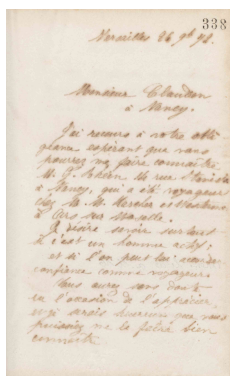 338
Versailles 26 9bre 78.
Monsieur Claudon
à Nancy.
J'ai recours à votre obli
geance espérant que vous
pourrez me faire connaître
M. J. 14 rue St
à Nancy, qui a été voyageur
chez M. M. Mercier et
à Ars sur Moselle.
Je désire savoir surtout
s'il est un homme actif,
et si l'on peut lui accorder
confiance comme voyageur.
Vous aurez sans doute
eu l'occasion de l'apprécier,
et je serais que vous
puissiez me le faire bien
connaître.